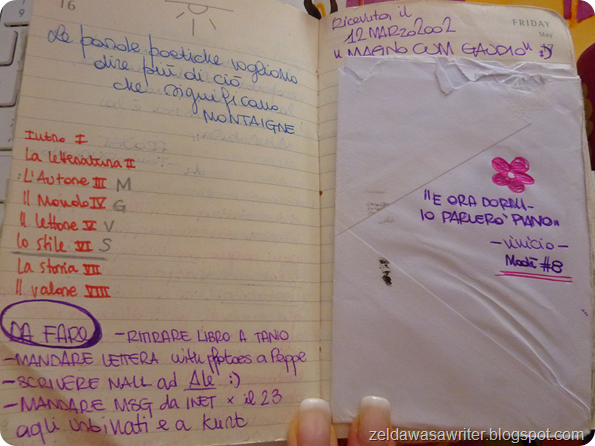 16
Le parole poetiche vogliono
dire più di ciò
che significano
MONTAIGNE
Intro I
La letteratura II
L'Autore III M
Il Mondo IV G
Il lettore V V
lo stile VI S
La storia VII
Il valore VIII
DA FARO - RITIRARE LIBRO A TANIO
- MANDARE LETTERA with photoes a Peppe
- SCRIVERE MAIL ad Ale :)
- MANDARE MSG da INET x il 23
agli urbinati e a kurt
Ricevuta il
12 MARZO 2002
"MAGNO CUM GAUDIO" :)
FRIDAY
May
"E ORA DORMI-
IO PARLERÒ PIANO"
- vinicio -
Modì #8
zeldawasawriter.blogspot.com